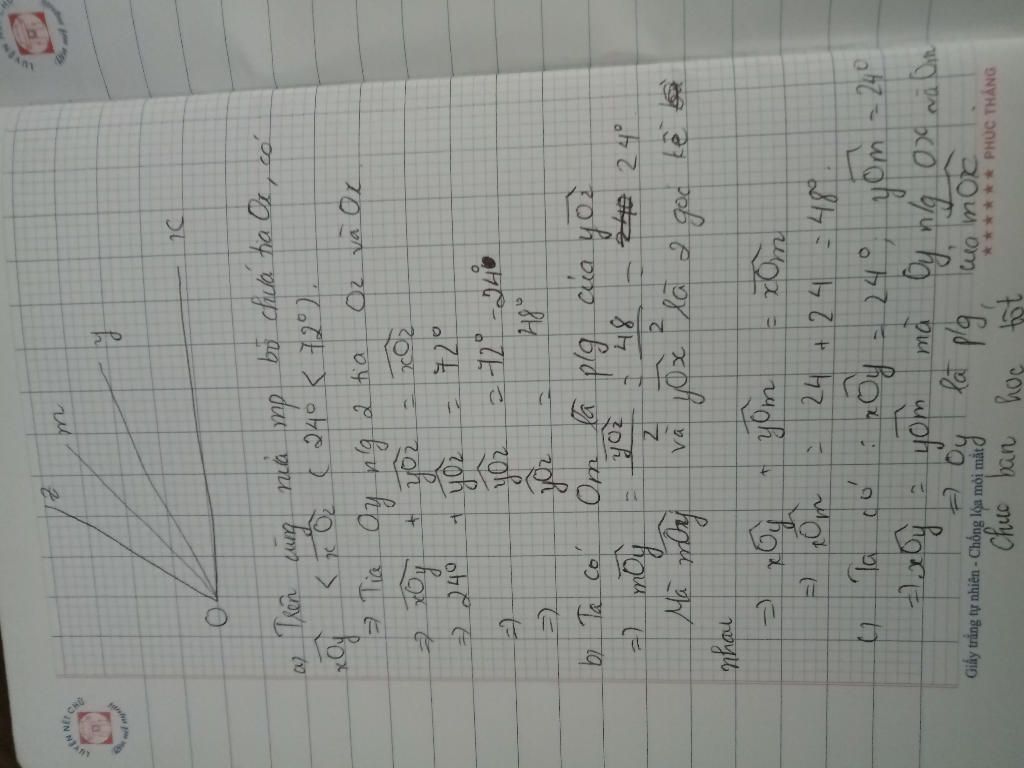 z
m
y
x
O
a) Trên cùng nửa mp bờ chứa tia Ox, có
xOy < xOz ( 24° < 72°).
=> Tia Oy n/g 2 tia Oz và Ox
=> xOy + yOz = xOz
=> 24° + yOz = 72°
=> yOz = 72° - 24°
=> yOz = 48°
b) Ta có Om là p/g của yOz
=> mOy = yOz/2 = 48/2 = 24°
Mà mOy và yOx là 2 góc kề
nhau
=> xOy + yOm = xOm
=> xOm = 24 + 24 = 48°.
c) Ta có : xOy = 24°, yOm = 24°
=> xOy = yOm mà Oy n/g Ox và Om
=> Oy là p/g của mOx
Giấy trắng tự nhiên - Chống lóa mỏi mắt
PHÚC THẮNG
Chúc bạn học tốt
LUYỆN NÉT CHỮ